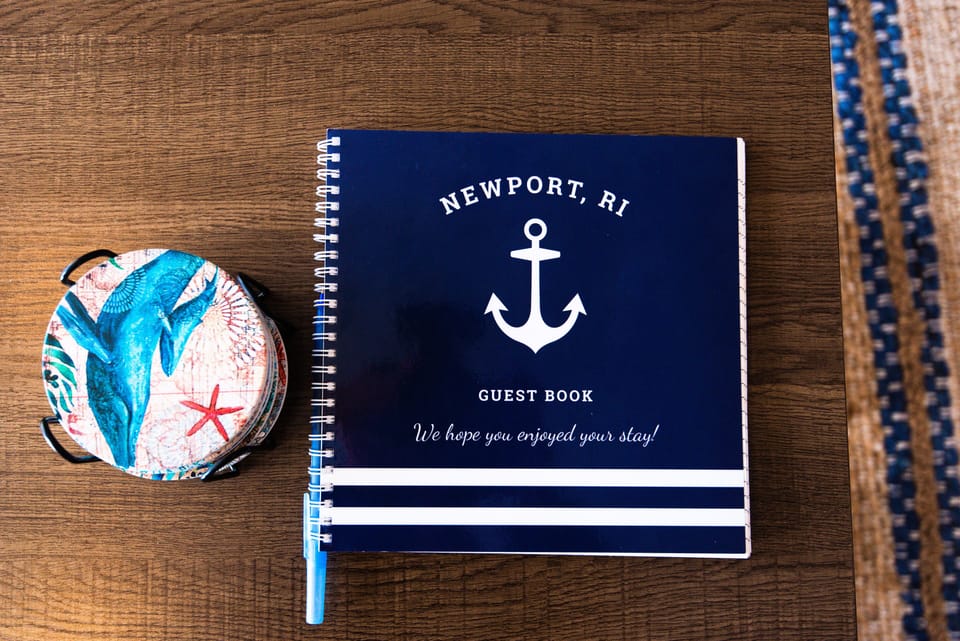 NEWPORT, RI
GUEST BOOK
We hope you enjoyed your stay!